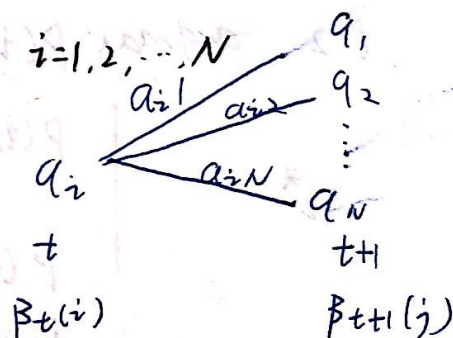 i=1,2,…,N
q₁
aᵢ1
q₂
aᵢ2
⋮
qᵢ
aᵢN
q_N
t
t+1
βt(i)
βt+1(j)